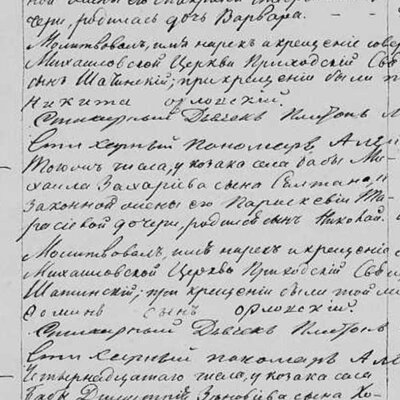 чери, родилась дочь Варвара.
Молитвовалъ, имѣ нарекъ и крещеніе совер
Михаиловской Церкви Приходскій Свя
сынъ Шапинскій; при крещеніи были т
Никита орловскій.
Стихарный Дьячекъ Платонъ
Стихарный пономарь Але
Тогожъ числа, у козака села бабы Ми-
хаила Захаріева сына Солтана, и
законной жены его Параскевіи Та-
расіевой дочери, родился сынъ Николай.
Молитвовалъ, имѣ нарекъ и крещеніе с
Михаиловской Церкви Приходскій Свя
Шапинскій; при крещеніи были той же
сынъ орловскій.
Стихарный Дьячекъ Платонъ
Стихарный пономарь Але
Четырнадцатого числа, у козака села
бабы Димитрія Зиновіева сына Хо-